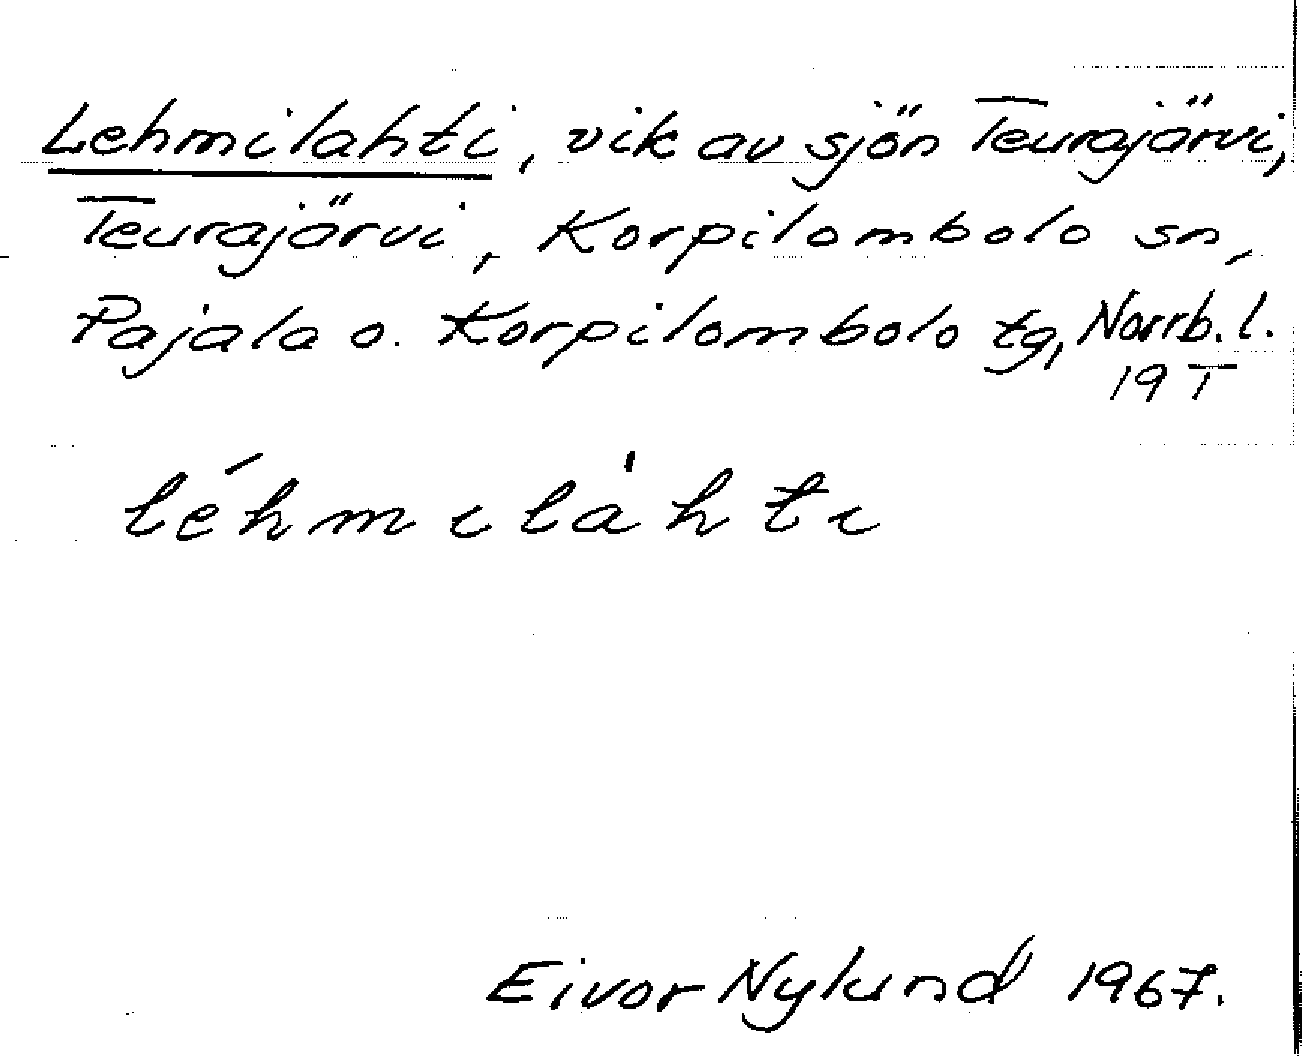 Lehmilahti, vik av sjön Teurajärvi,
Teurajärvi, Korpilombolo sn,
Pajala o. Korpilombolo tg, Norrb. l.
19 T
léhmilàhti
Eivor Nylund 1967.